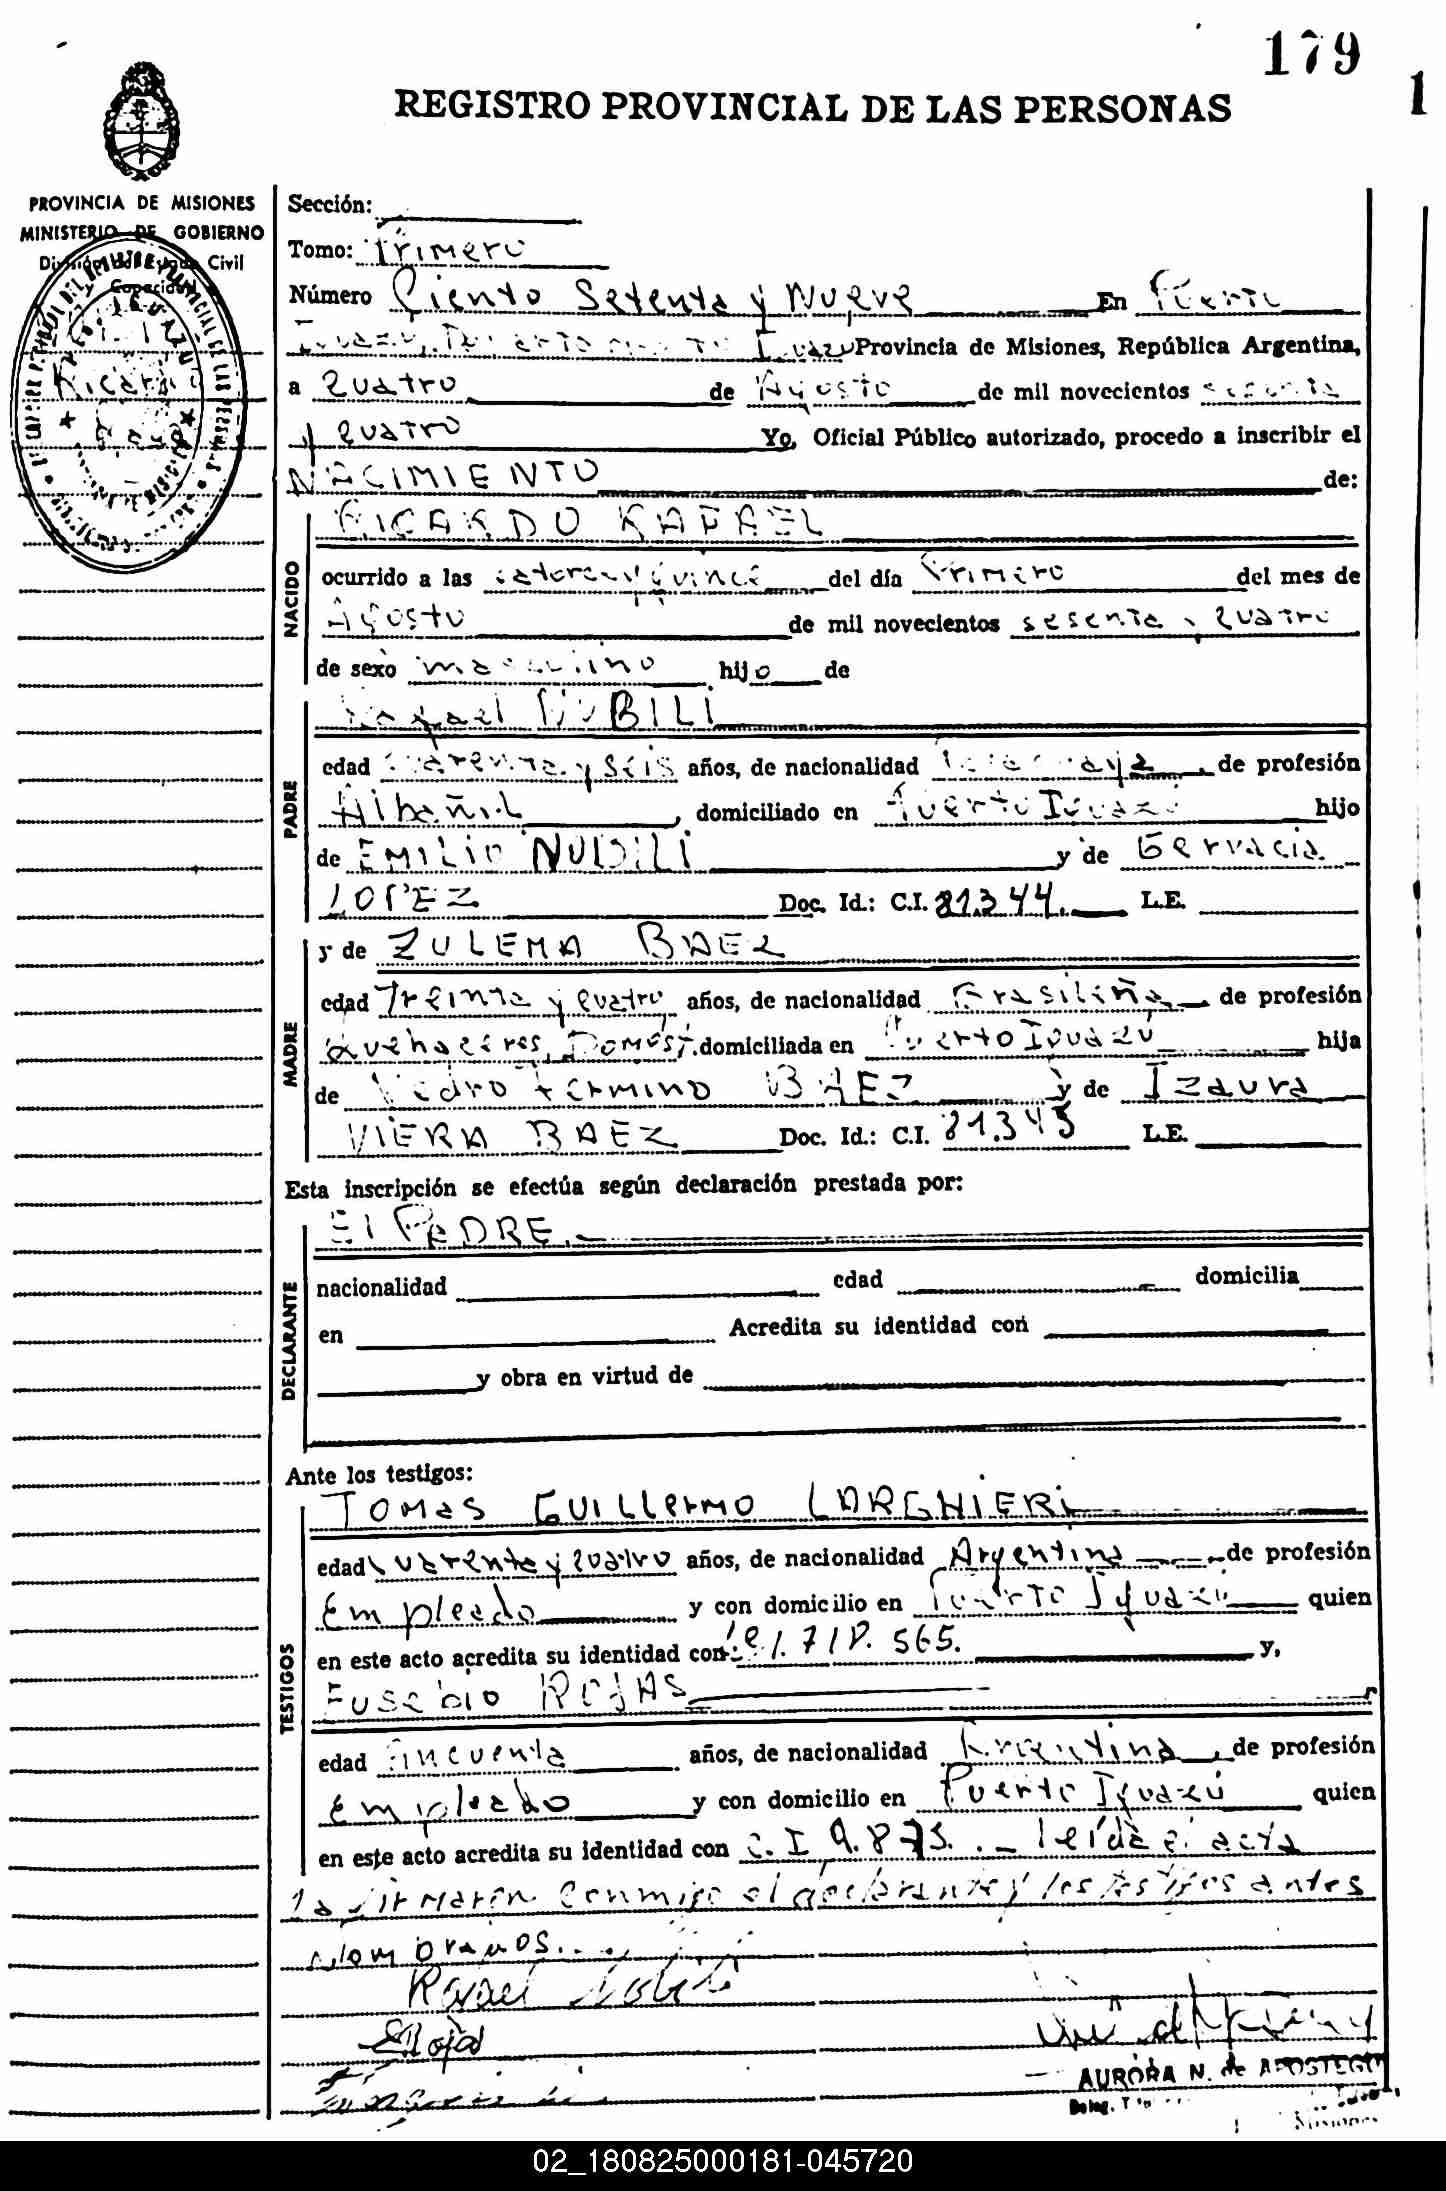 179
1
REGISTRO PROVINCIAL DE LAS PERSONAS
PROVINCIA DE MISIONES
MINISTERIO DE GOBIERNO
Civil
Capacidad
Ricardo
Sección:
Tomo: Primero
Número Ciento Setenta y Nueve En Puerto
Iguazú, Iguazú Provincia de Misiones, República Argentina,
a Cuatro de Agosto de mil novecientos sesenta
y cuatro Yo, Oficial Público autorizado, procedo a inscribir el
NACIMIENTO de:
NACIDO
RICARDO RAFAEL
ocurrido a las catorce y quince del día Primero del mes de
Agosto de mil novecientos sesenta y cuatro
de sexo masculino hijo de
PADRE
Rafael NUBILI
edad cuarenta y seis años, de nacionalidad de profesión
Albañil, domiciliado en Puerto Iguazú hijo
de EMILIO NUBILI y de Gervacia
LOPEZ Doc. Id.: C.I. 81.344. L.E.
MADRE
y de ZULEMA BAEZ
edad Treinta y cuatro años, de nacionalidad Brasileña de profesión
Quehaceres Domést. domiciliada en Puerto Iguazú hija
de Pedro Fermino BAEZ y de Izaura
VIERA BAEZ Doc. Id.: C.I. 81.345 L.E.
Esta inscripción se efectúa según declaración prestada por:
DECLARANTE
El PADRE.
nacionalidad edad domicilia
en Acredita su identidad con
y obra en virtud de
Ante los testigos:
TESTIGOS
TOMAS GUILLERMO LARGHIERI
edad Cuarenta y cuatro años, de nacionalidad Argentina de profesión
Empleado y con domicilio en Puerto Iguazú quien
en este acto acredita su identidad con: 565. y,
Eusebio ROJAS
edad Cincuenta años, de nacionalidad Argentina, de profesión
Empleado y con domicilio en Puerto Iguazú quien
en este acto acredita su identidad con C.I 9.875. leída el acta
la firmaron conmigo el declarante y los testigos antes
nombrados.
Rafael Nubili
ERojas
AURORA N. de APOSTEGUI
Deleg.
Misiones
02_180825000181-045720